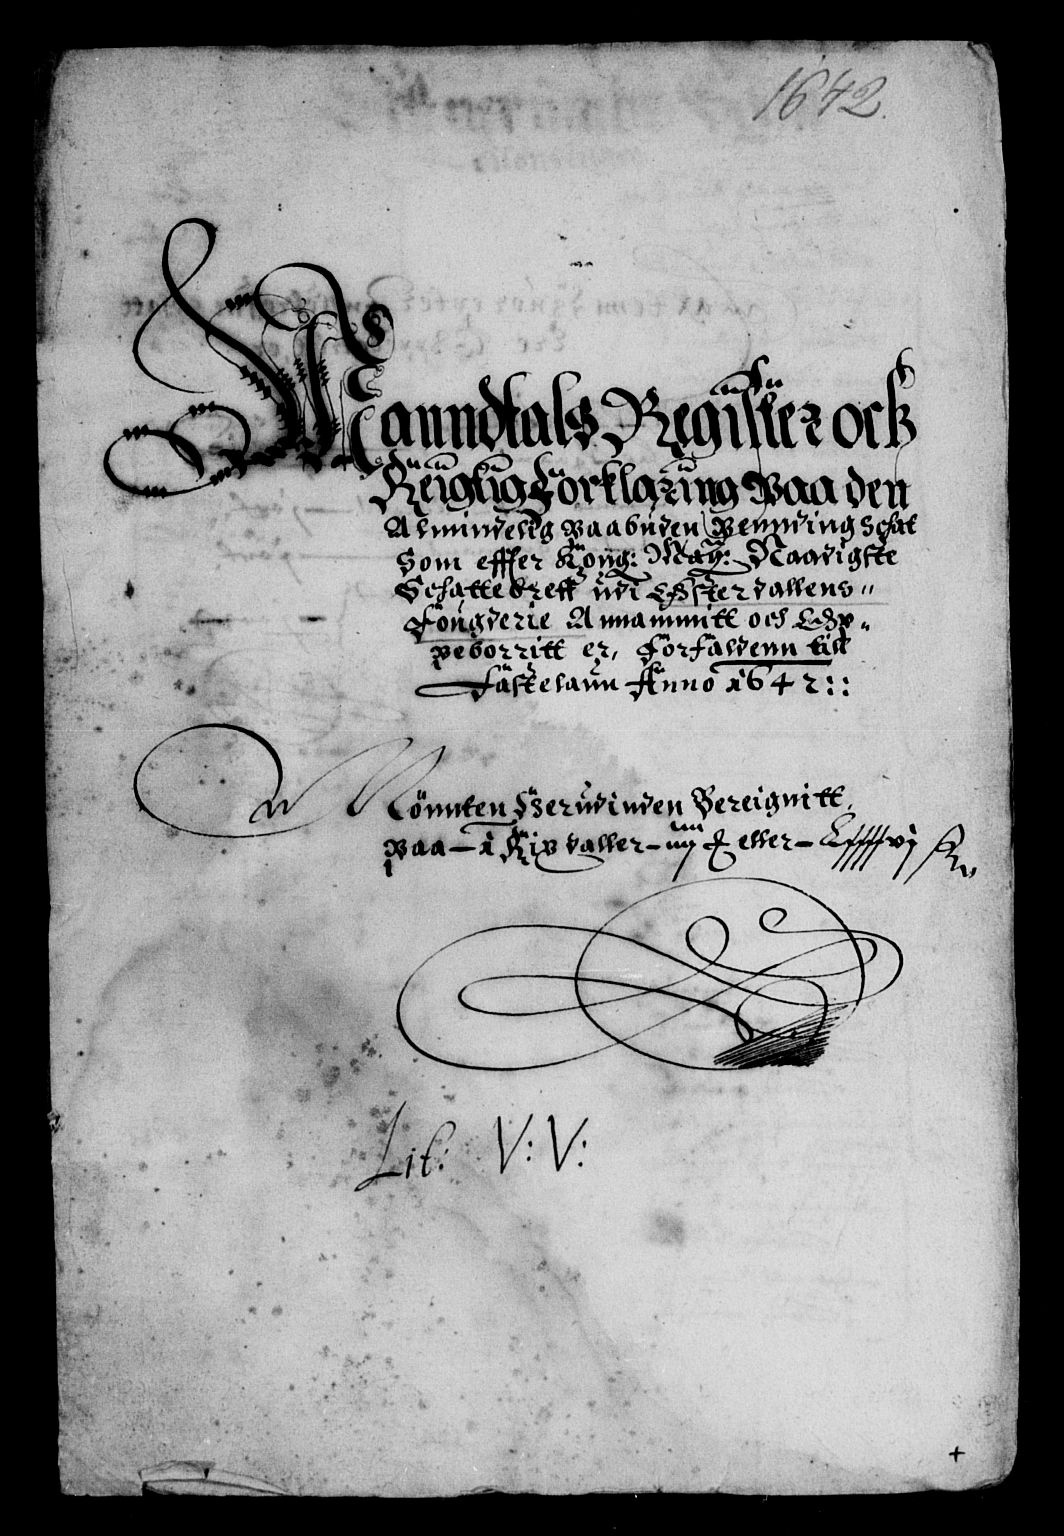 1642.
Manndtals Register och
Reigtig Forklaring Paa den
Almindelig Paabuden Pennding Schat
Som effter Kong: May: Naadigste
Schattebreff udi Østerdallens
Fougderie Annammitt och Op-
peborritt er, Forfaldenn till
Fastelaun Anno 1642::
Mönnten Herudinden Bereignitt,
Paa - 1 Rix daller - iiij eller -
Lit: V: V: